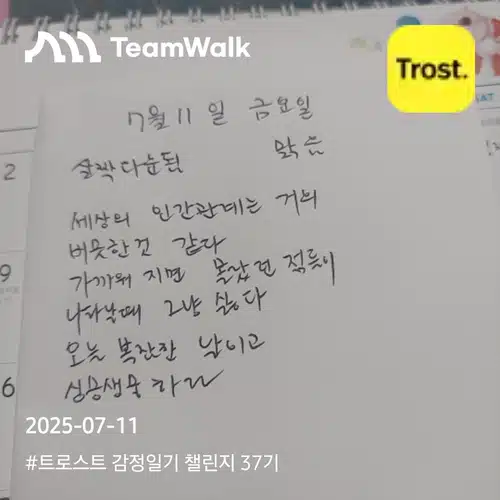 TeamWalk
Trost.
7월 11일 금요일
살짝다순됨 맑음
세상의 인간관계는 거의
비슷한건 같다
가까워 지면 몰랐던 점들이
나타날때 그냥 싫다
오늘 복잔한 날이고
SAT
2
9
6
2025-07-11
#트로스트 감정일기 챌린지 37기